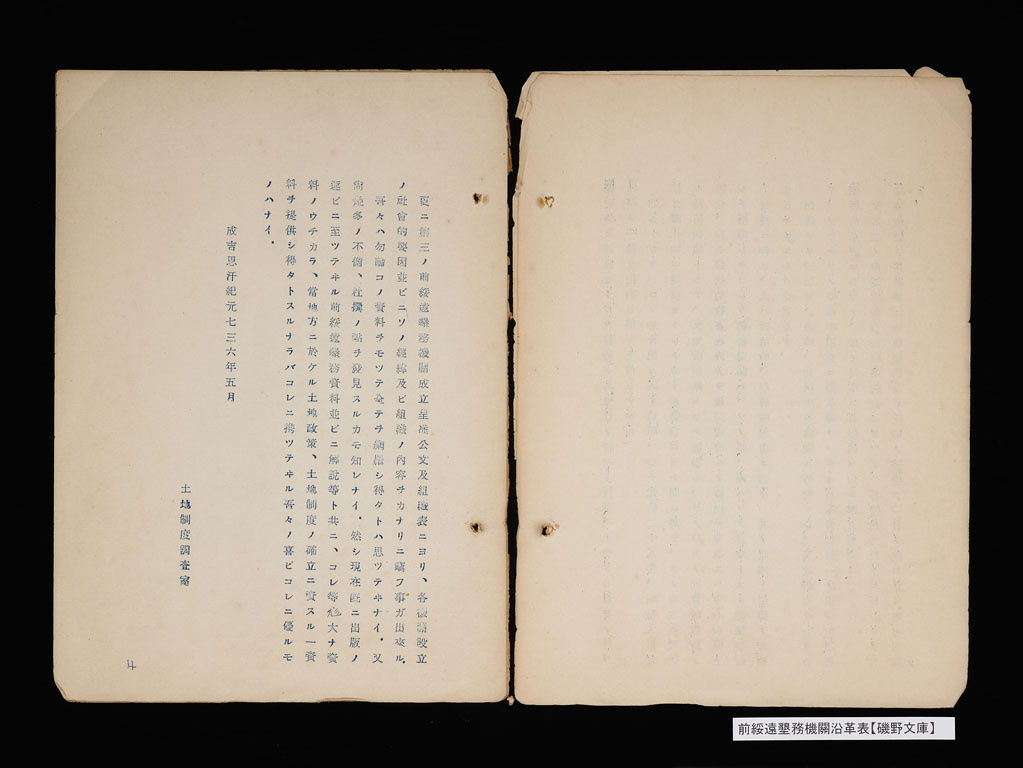 更ニ第三ノ前綏遠墾務機關成立呈准公文及組織表ニヨリ、各機關設立
ノ社會的要因並ビニソノ經緯及ビ組織ノ內容ヲカナリニ窺フ事ガ出來ル。
吾々ハ勿論コノ資料ヲモツテ全テヲ網羅シ得タトハ思ツテヰナイ。又
尙幾多ノ不備、杜撰ノ點ヲ發見スルカモ知レナイ。然シ現在既ニ出版ノ
運ビニ至ツテヰル前綏遠墾務資料並ビニ解說等ト共ニ、コレ等尨大ナ資
料ノウチカラ、當地方ニ於ケル土地政策、土地制度ノ確立ニ資スル一資
料ヲ提供シ得タトスルナラバコレニ携ツテヰル吾々ノ喜ビコレニ優ルモ
ノハナイ。
成吉思汗紀元七三六年五月
土地制度調查室
4
前綏遠墾務機關沿革表【磯野文庫】